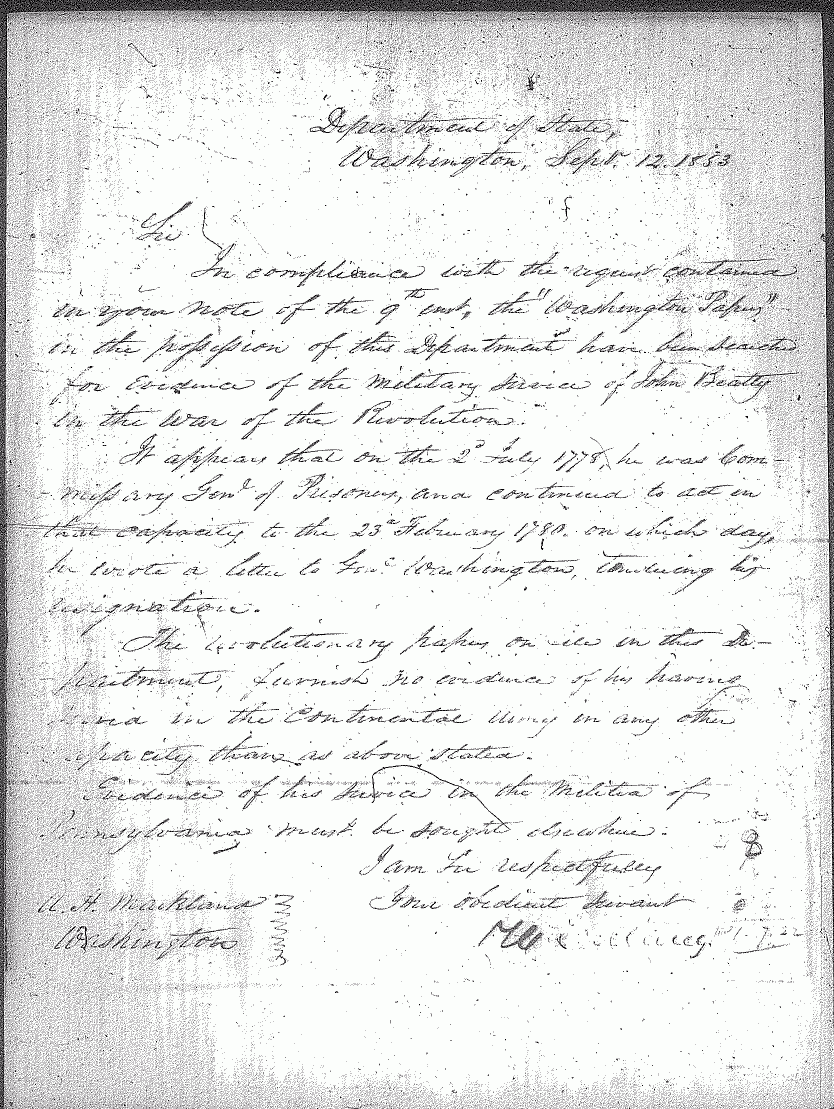 Department of State,
Washington, Sept. 12. 1853
Sir
In compliance with the request contained
in your note of the 9th inst, the "Washington Papers"
in the possession of this Department have been searched
for Evidence of the Military Service of John Beatty
in the War of the Revolution.
It appears that on the 2d July 1778, he was Com-
-missary Genl of Prisoners, and continued to act in
that capacity to the 23d February 1780. on which day,
he wrote a letter to Genl Washington, tendering his
resignation.
The revolutionary papers on file in this De-
-partment, furnish no evidence of his having
served in the Continental Army in any other
capacity than as above stated.
Evidence of his service in the Militia of
Pennsylvania must be sought elsewhere.
I am Sir respectfully
Your obedient servant
A. H. Markland
Washington